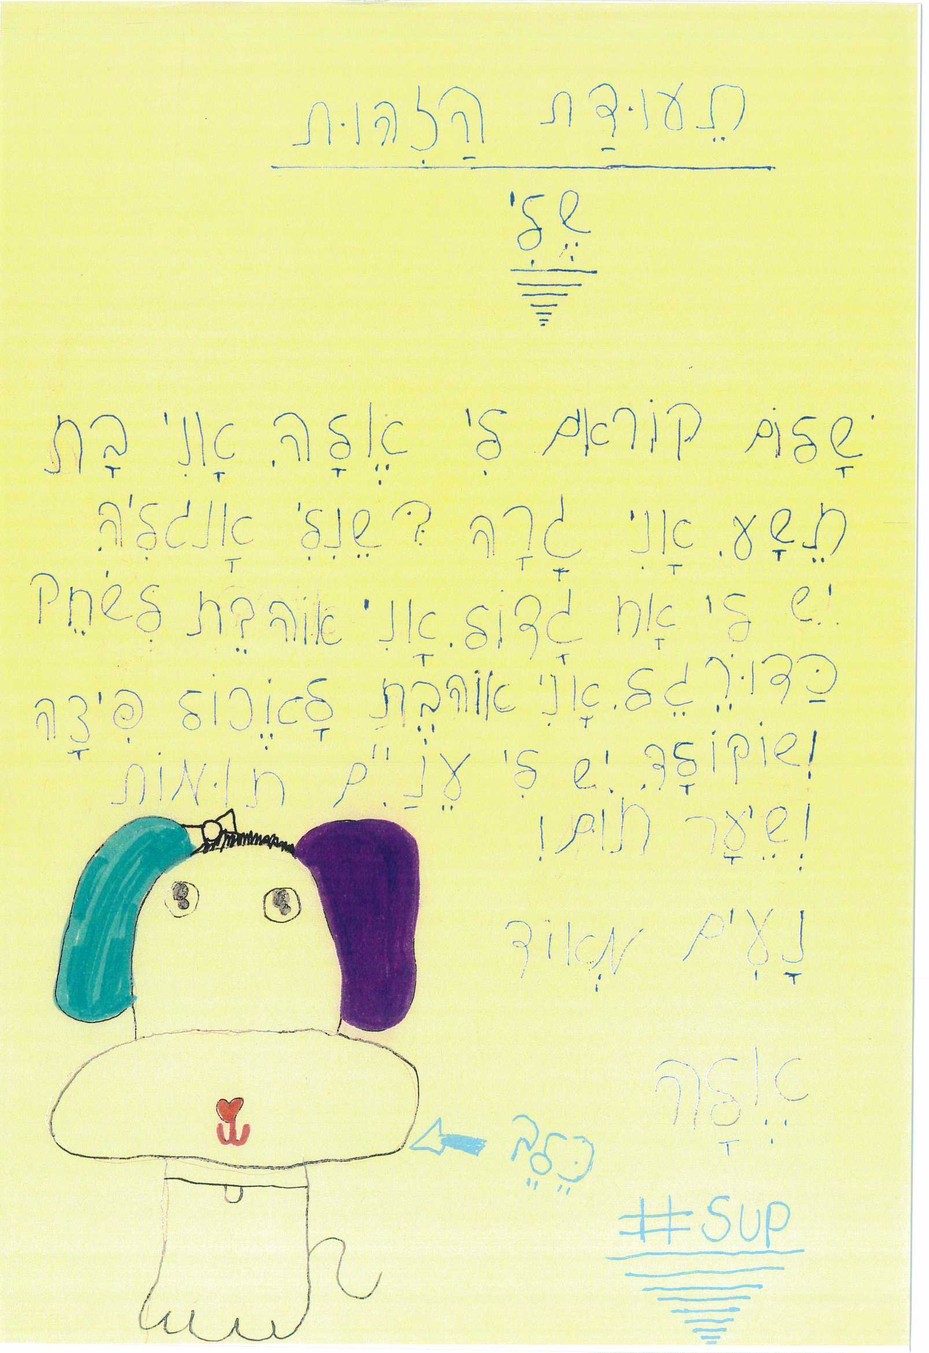 תֵעוּדַת הַזֶהוּת
שֶׁלִי
שָׁלוֹם קוֹרְאִם לִי אֶלָה. אָנִי בָּת
תֵשָׁע. אָנִי גָרָה בְּשֵנְלִי אָנגְלִיָה.
יֵש לִי אָח גָדוֹל. אָנִי אוֹהבֵת לְשׂחֵק
כַּדוּרֶגֶל. אָנִי אוֹהבֶת לָאֶכוֹל פִּיצָה
ושוֹקוֹלָד. יֵש לִי עֵנַיִים חוּמוֹת
וְשֵיעָר חוּם!
נָעִים מְאוֹד
אֶלָה
כֶּלֶב
#SUP